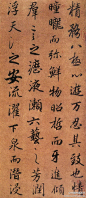 精鶩八極心遊萬仞其致也情
曈曨而彌鮮物昭晢而互進傾
羣言之瀝液漱六藝之芳潤
浮天淵之安流濯下泉而潛浸